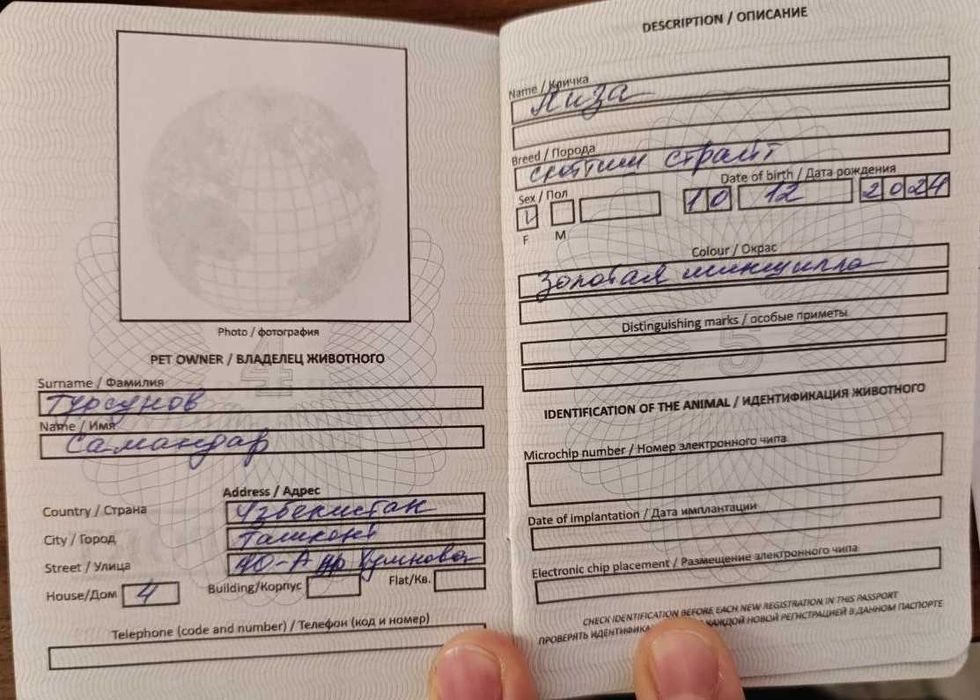 Photo / фотография
PET OWNER / ВЛАДЕЛЕЦ ЖИВОТНОГО
Surname / Фамилия
Турсунов
Name / Имя
Самандар
Address / Адрес
Country / Страна
Узбекистан
City / Город
Ташкент
Street / Улица
40-А
House/Дом 4 Building/Корпус Flat/Кв.
Telephone (code and number) / Телефон (код и номер)
4
DESCRIPTION / ОПИСАНИЕ
Name / Кличка
Лиза
Breed / Порода
скоттиш страйт
Sex / Пол
Date of birth / Дата рождения
10 12 2024
F M
Colour / Окрас
Золотая шиншилла
Distinguishing marks / особые приметы
5
IDENTIFICATION OF THE ANIMAL / ИДЕНТИФИКАЦИЯ ЖИВОТНОГО
Microchip number / Номер электронного чипа
Date of implantation / Дата имплантации
Electronic chip placement / Размещение электронного чипа
CHECK IDENTIFICATION BEFORE EACH NEW REGISTRATION IN THIS PASSPORT
ПРОВЕРЯТЬ КАЖДОЙ НОВОЙ РЕГИСТРАЦИЕЙ В ДАННОМ ПАСПОРТЕ